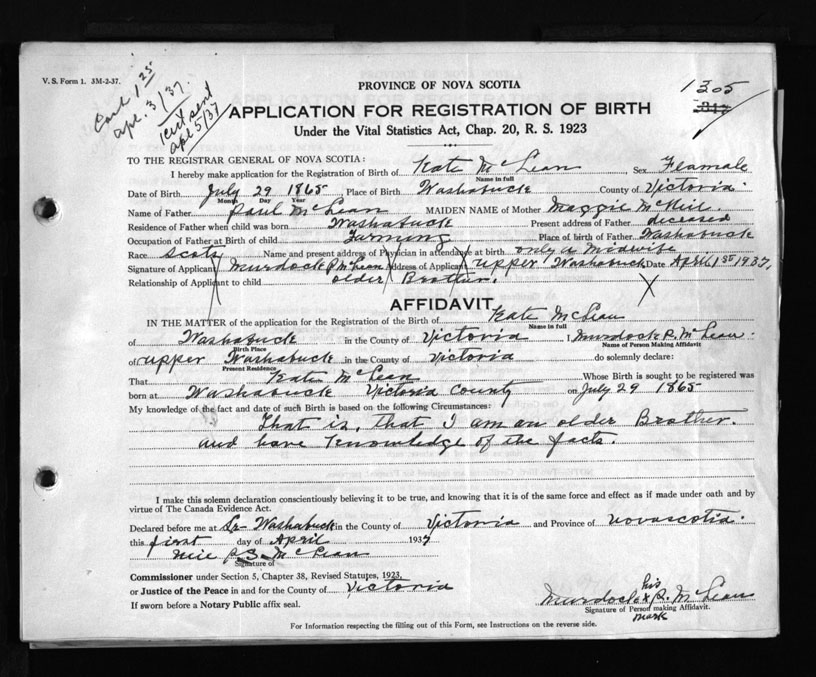 V. S. Form 1. 3M-2-37.
Cash 1 25
apl. 3/37.
cert sent
apl 5/37
PROVINCE OF NOVA SCOTIA
1305
APPLICATION FOR REGISTRATION OF BIRTH
Under the Vital Statistics Act, Chap. 20, R. S. 1923
TO THE REGISTRAR GENERAL OF NOVA SCOTIA:
I hereby make application for the Registration of Birth of Kate McLean Sex Feamale
Name in full
Date of Birth July 29 1865, Place of Birth Washabuck County of Victoria.
Month Day Year
Name of Father Paul McLean MAIDEN NAME of Mother Maggie McNeil.
Residence of Father when child was born Washabuck Present address of Father deceased
Occupation of Father at Birth of child Farming Place of birth of Father Washabuck
Race Scots Name and present address of Physician in attendance at birth only a Midwife
Signature of Applicant Murdock R McLean Address of Applicant Upper Washabuck Date April 1st 1937,
Relationship of Applicant to child older Brother.
AFFIDAVIT
IN THE MATTER of the application for the Registration of the Birth of Kate McLean
Name in full
of Washabuck in the County of Victoria I Murdock R. McLean.
Birth Place Name of Person Making Affidavit
of Upper Washabuck in the County of Victoria do solemnly declare:
Present Residence
That Kate McLean Whose Birth is sought to be registered was
born at Washabuck Victoria County on July 29 1865
My knowledge of the fact and date of such Birth is based on the following Circumstances:
That is, that I am an older Brother.
and have Knowledge of the facts.
I make this solemn declaration conscientiously believing it to be true, and knowing that it is of the same force and effect as if made under oath and by
virtue of The Canada Evidence Act.
Declared before me at Washabuck in the County of Victoria and Province of Novascotia.
this first day of April 1937
Neil P. S. McLean
Signature of
Commissioner under Section 5, Chapter 38, Revised Statutes, 1923,
or Justice of the Peace in and for the County of Victoria
his
Murdock X R. McLean
If sworn before a Notary Public affix seal.
Signature of Person making Affidavit.
mark
For Information respecting the filling out of this Form, see Instructions on the reverse side.